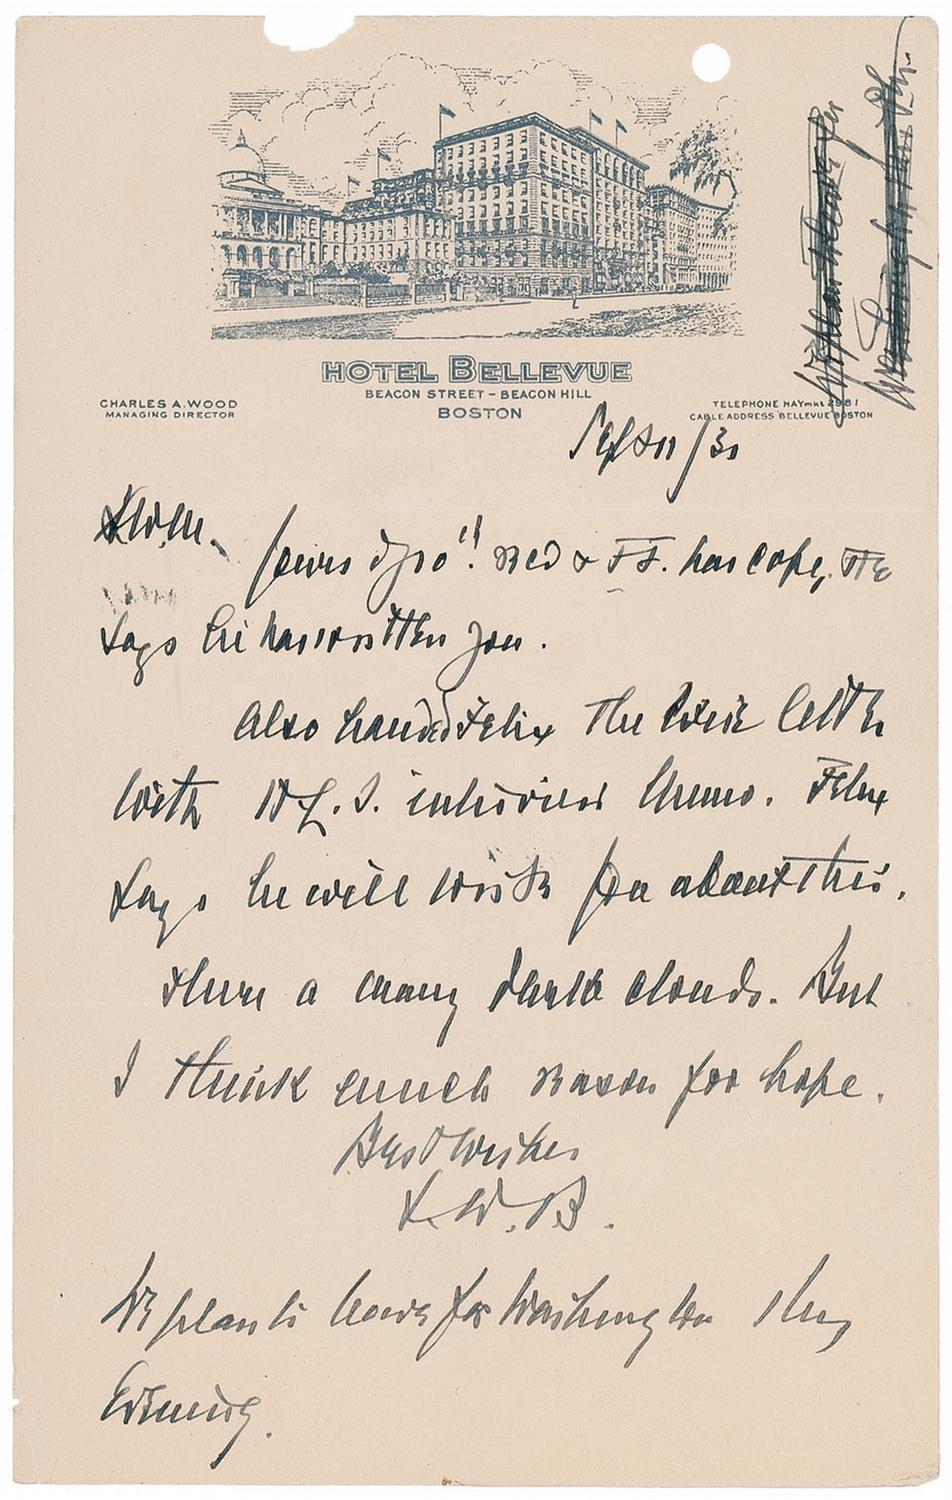 HOTEL BELLEVUE
BEACON STREET - BEACON HILL
BOSTON
CHARLES A. WOOD
MANAGING DIRECTOR
TELEPHONE HAYmkt 2981
CABLE ADDRESS BELLEVUE BOSTON
Sept 11/30
Yours of 7th recd & F.F. has copy. He
says he has written you.
Also handed Felix the Weil letter
with interview memo. Felix
says he will write you about this.
There a many dark clouds. But
I think much reason for hope.
Best wishes
L. D. B.
We plan to leave for Washington Thy
Evening.